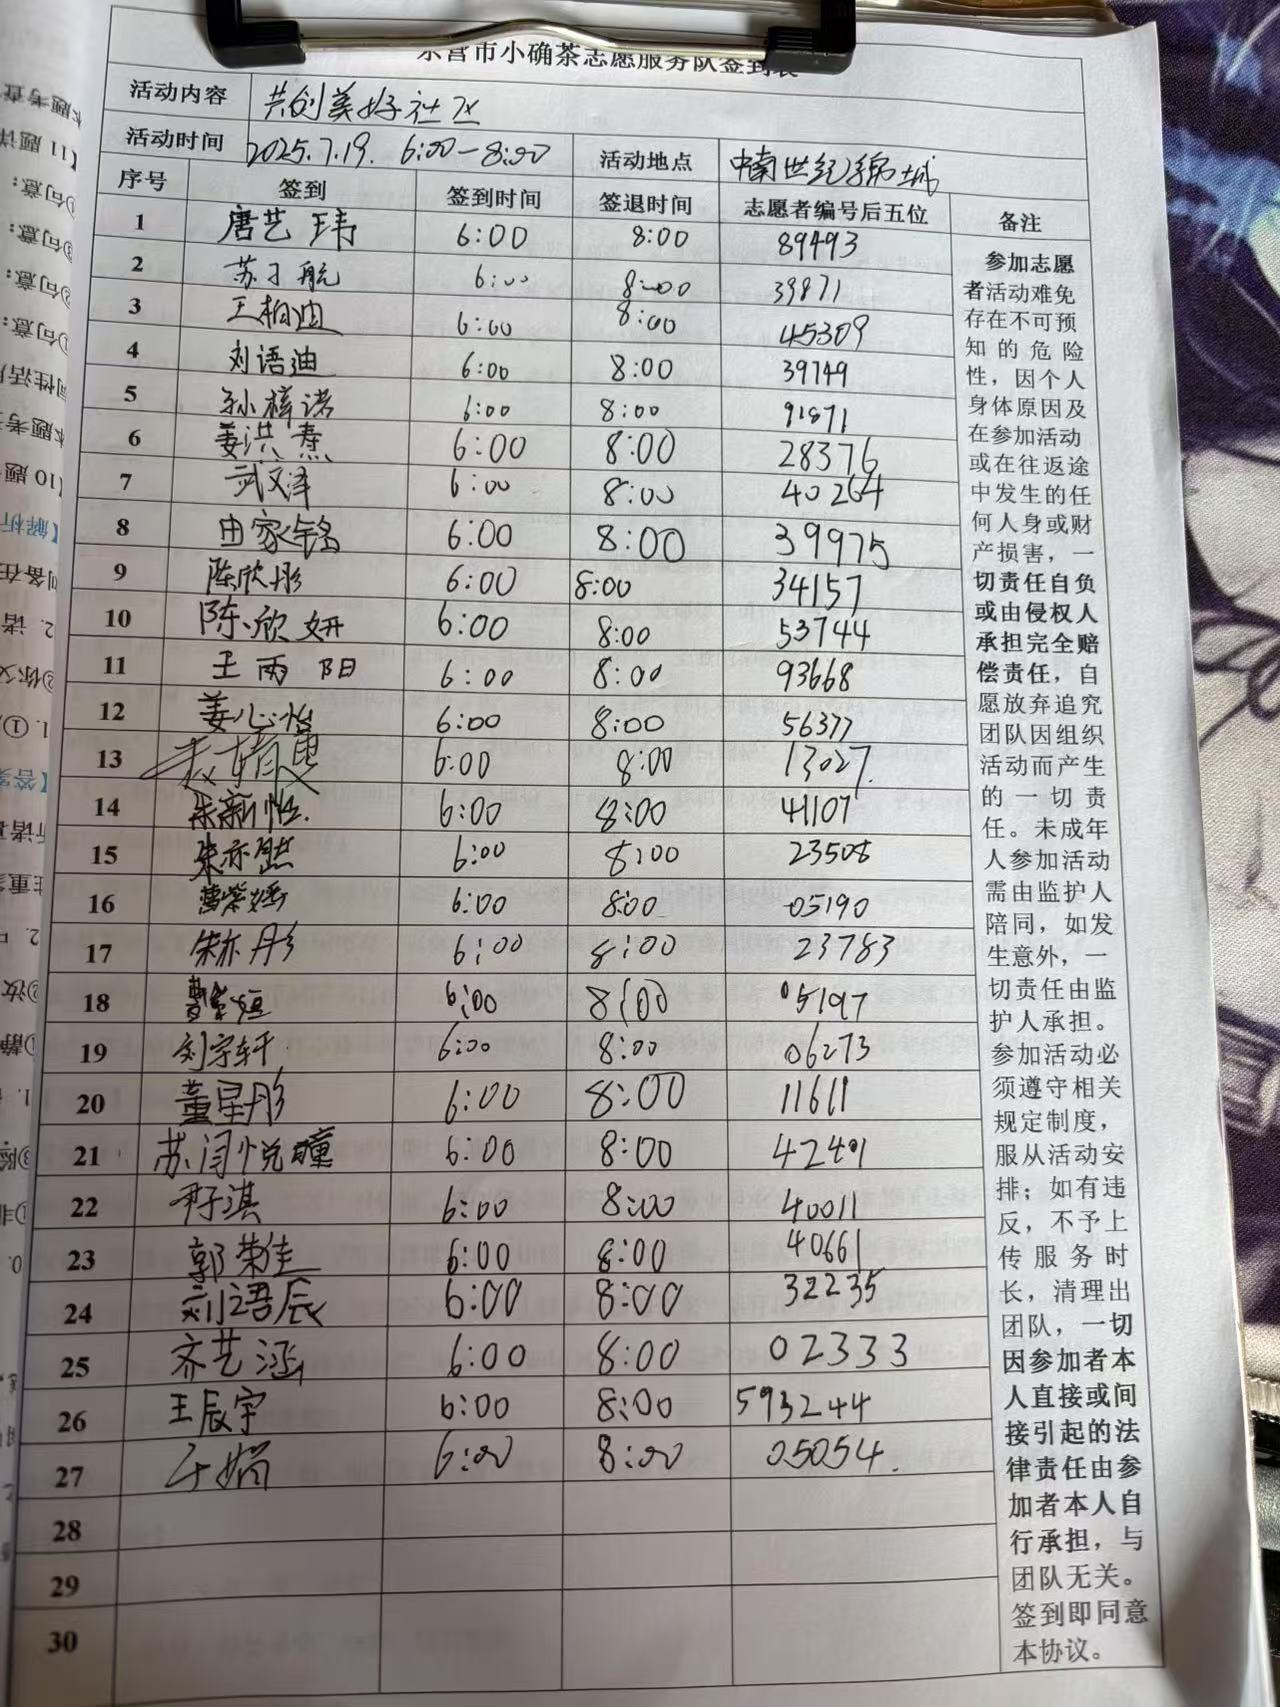 东营市小确茶志愿服务队签到表
活动内容 共创美好社区
活动时间 2025.7.19. 6:00-8:00 活动地点 中南世纪锦城
序号 签到 签到时间 签退时间 志愿者编号后五位 备注
1 唐艺玮 6:00 8:00 89493
2 苏子航 6:00 8:00 39871
3 王柏迪 6:00 8:00 45309
4 刘语迪 6:00 8:00 39749
5 孙梓诺 6:00 8:00 91871
6 姜洪焘 6:00 8:00 28376
7 武文泽 6:00 8:00 40264
8 由家铭 6:00 8:00 39975
9 陈欣彤 6:00 8:00 34157
10 陈欣妍 6:00 8:00 53744
11 王雨阳 6:00 8:00 93668
12 姜心怡 6:00 8:00 56377
13 6:00 8:00 13027.
14 朱新怡. 6:00 8:00 41107
15 朱亦然 6:00 8:00 23508
16 曹紫 6:00 8:00 05190
17 朱亦彤 6:00 8:00 23783
18 曹紫烜 6:00 8:00 05197
19 刘宇轩 6:00 8:00 06273
20 董星彤 6:00 8:00 11611
21 苏闫悦瞳 6:00 8:00 42491
22 淇 6:00 8:00 40011
23 郭荣佳 6:00 8:00 40661
24 刘语辰 6:00 8:00 32235
25 齐艺涵 6:00 8:00 02333
26 王辰宇 6:00 8:00 593244
27 于娟 6:00 8:00 05054.
28
29
30
参加志愿
者活动难免
存在不可预
知的危险
性，因个人
身体原因及
在参加活动
或在往返途
中发生的任
何人身或财
产损害，一
切责任自负
或由侵权人
承担完全赔
偿责任，自
愿放弃追究
团队因组织
活动而产生
的一切责
任。未成年
人参加活动
需由监护人
陪同，如发
生意外，一
切责任由监
护人承担。
参加活动必
须遵守相关
规定制度，
服从活动安
排；如有违
反，不予上
传服务时
长，清理出
团队，一切
因参加者本
人直接或间
接引起的法
律责任由参
加者本人自
行承担，与
团队无关。
签到即同意
本协议。